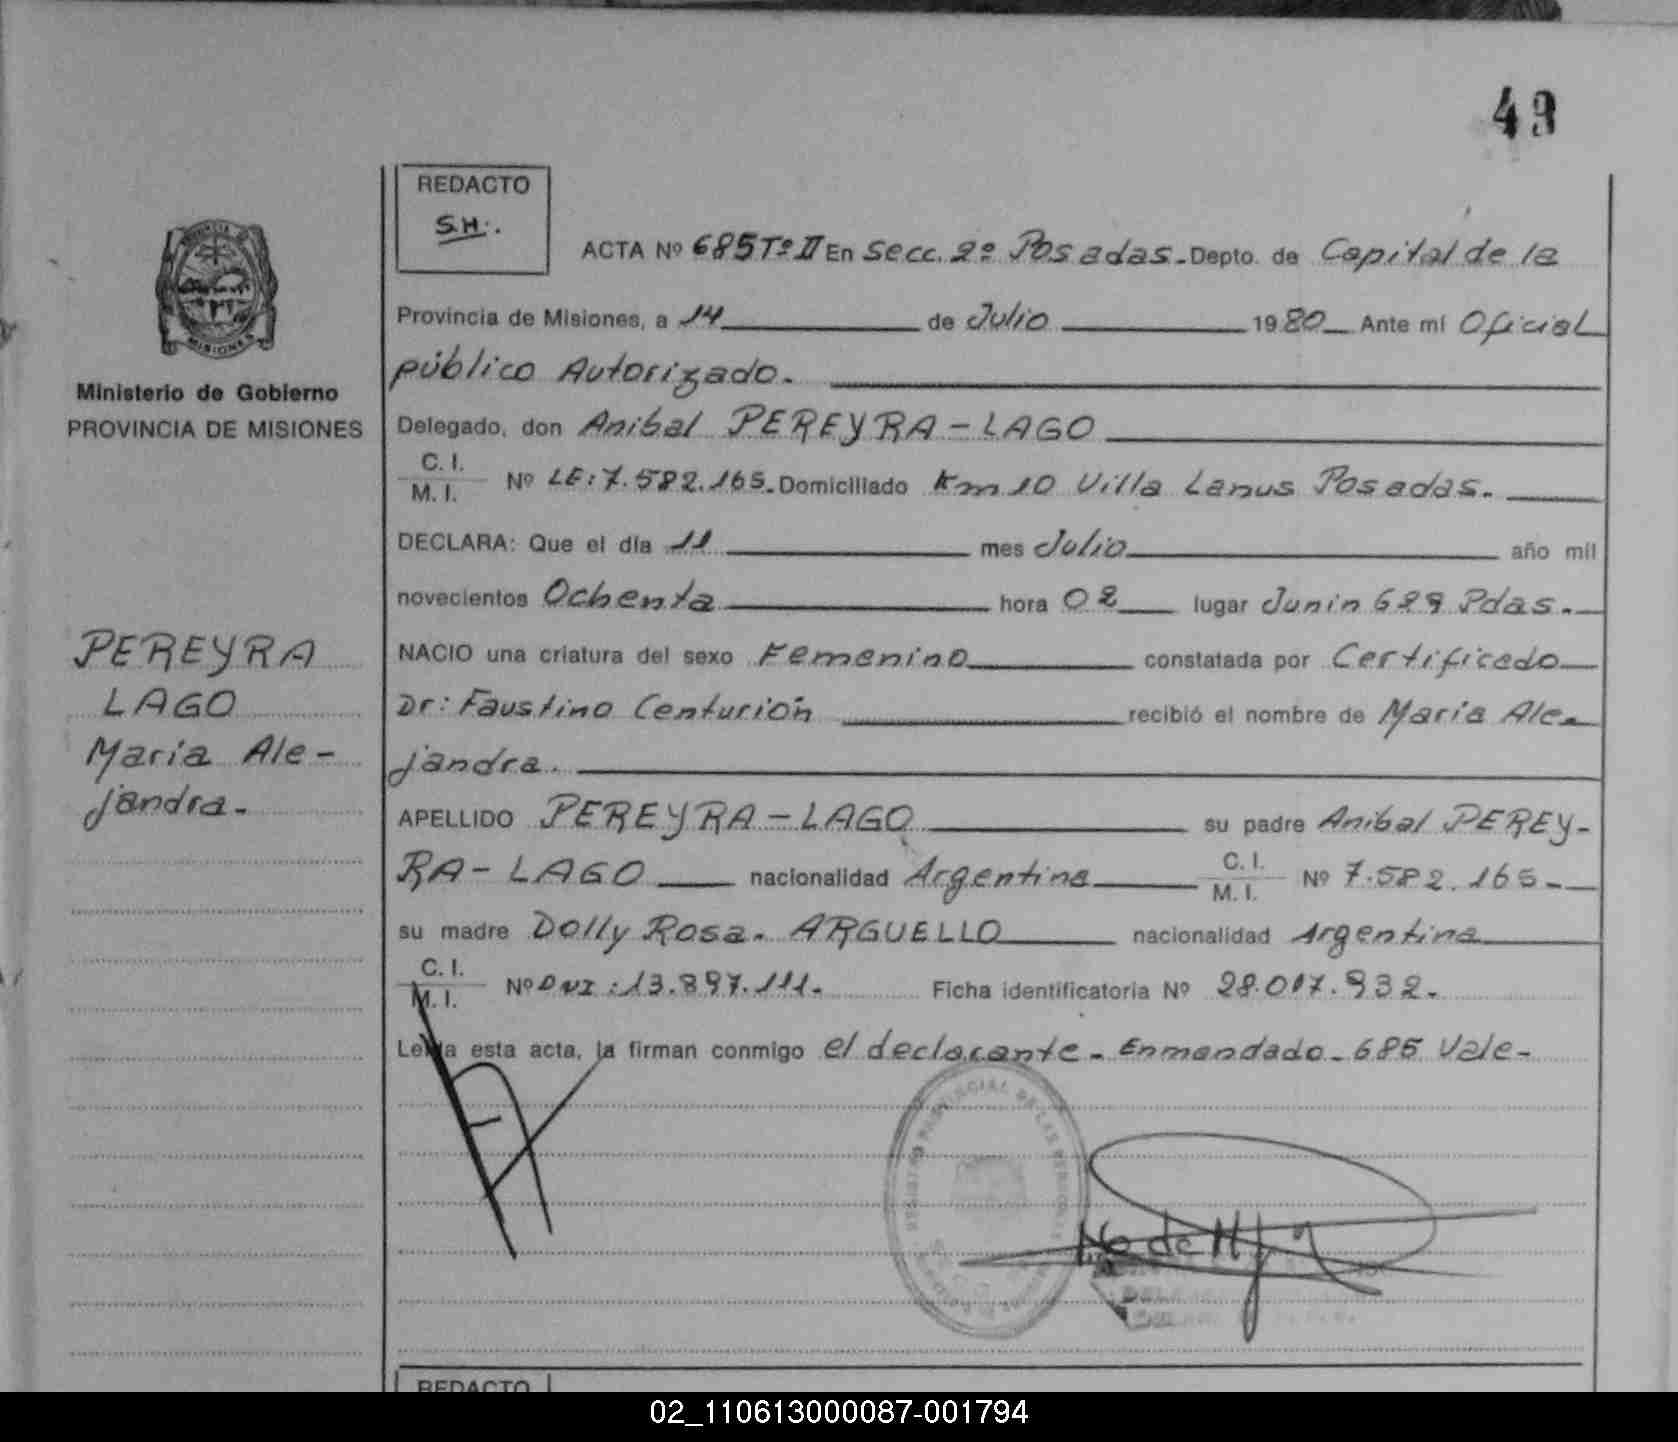 49
REDACTO
S.H.
ACTA Nº 685 Tº II En Secc. 2º Posadas.- Depto. de Capital de la
Provincia de Misiones, a 14 de Julio 1980 Ante mí Oficial
público Autorizado.
Delegado, don Anibal PEREYRA-LAGO
C. I.
M. I. Nº LE: 7.582.165. Domiciliado Km 10 Villa Lanus Posadas.
DECLARA: Que el día 11 mes Julio año mil
novecientos Ochenta hora 02 lugar Junin 689 Pdas.
NACIO una criatura del sexo Femenino constatada por Certificado
Dr: Faustino Centurión recibió el nombre de María Ale-
jandra.
APELLIDO PEREYRA-LAGO su padre Anibal PEREY-
RA-LAGO nacionalidad Argentina C. I. M. I. Nº 7.582.165.
su madre Dolly Rosa. ARGUELLO nacionalidad Argentina
C. I.
M. I. Nº DNI: 13.897.111. Ficha identificatoria Nº 28.017.932.
Leída esta acta, la firman conmigo el declarante. Enmendado. 685 Vale-
Ministerio de Gobierno
PROVINCIA DE MISIONES
PEREYRA
LAGO
María Ale-
jandra.
MISIONES
REDACTO
02_110613000087-001794